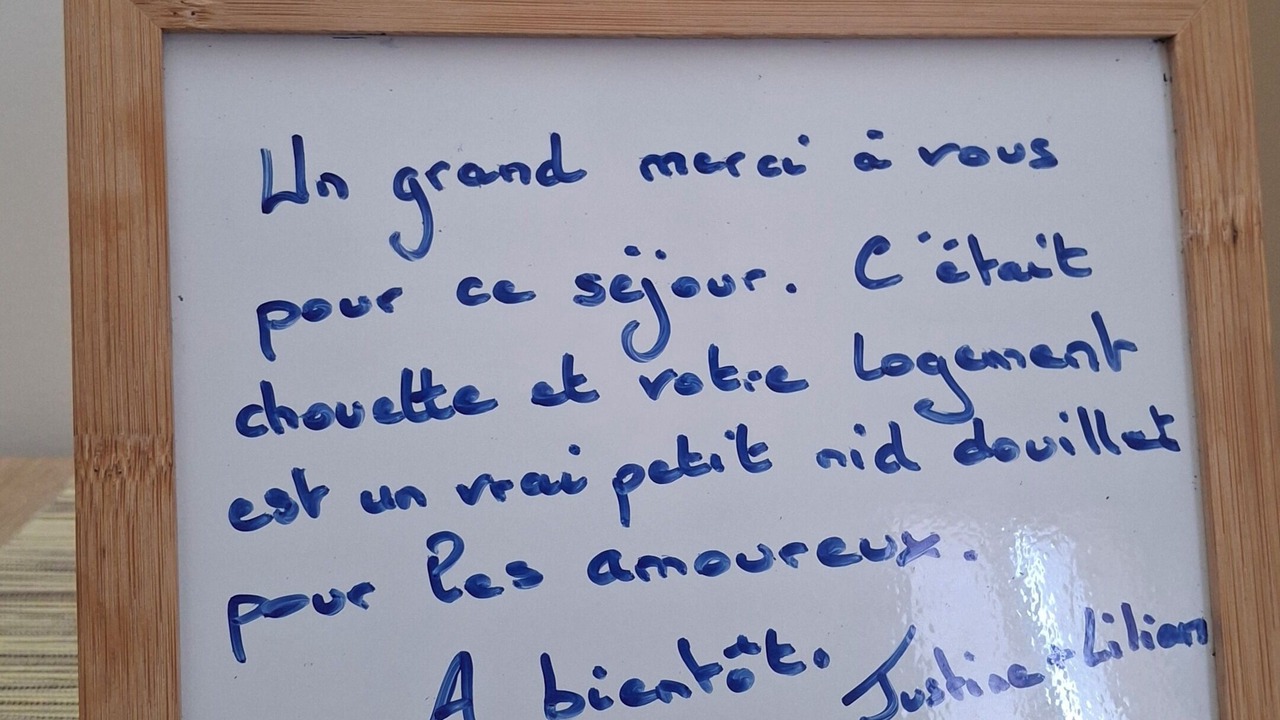 Un grand merci à vous
pour ce séjour. C'était
chouette et votre logement
est un vrai petit nid douillet
pour les amoureux.
A bientôt. Justine + Lilian